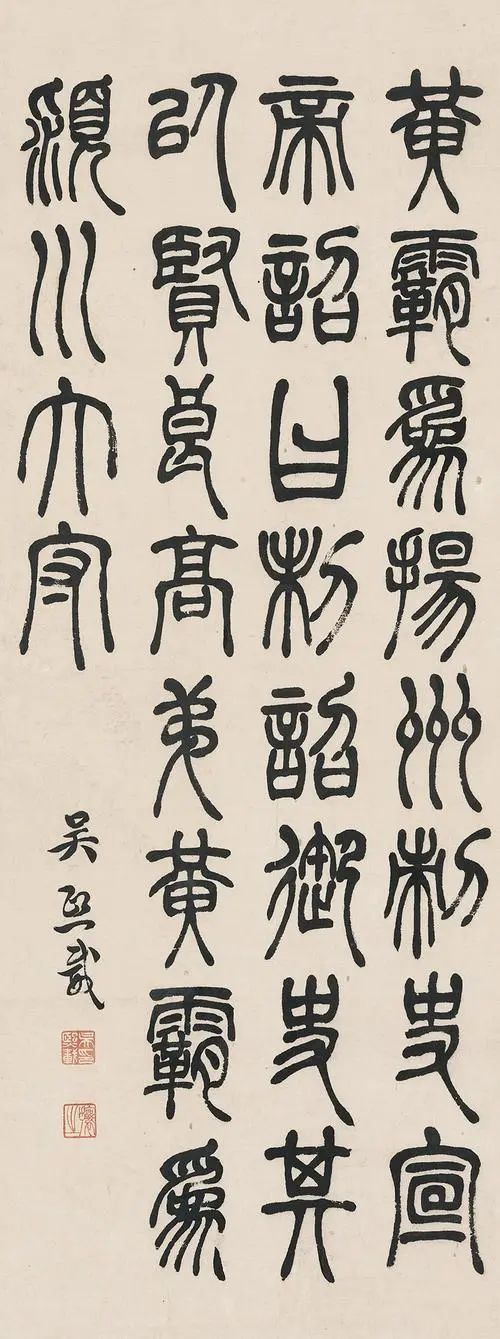 黃霸爲揚州刺史宣
帝詔曰制詔御史其
以賢良高弟黃霸爲
潁川大守
吳熙載